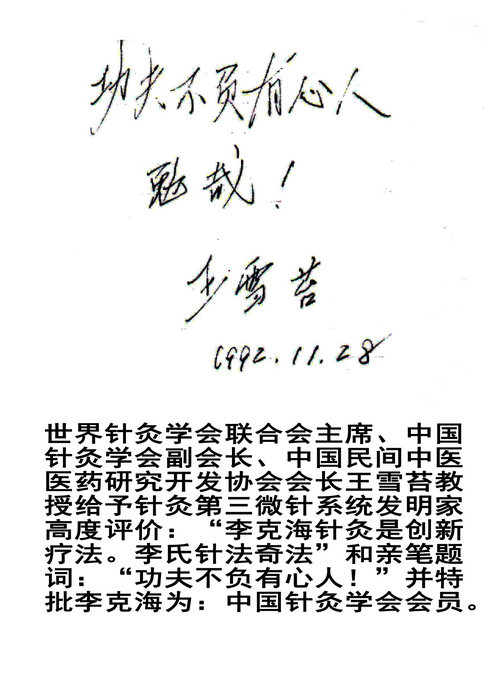 功夫不负有心人
勉哉！
王雪苔
1992.11.28
世界针灸学会联合会主席、中国
针灸学会副会长、中国民间中医
医药研究开发协会会长王雪苔教
授给予针灸第三微针系统发明家
高度评价：“李克海针灸是创新
疗法。李氏针法奇法”和亲笔题
词：“功夫不负有心人！”并特
批李克海为：中国针灸学会会员。